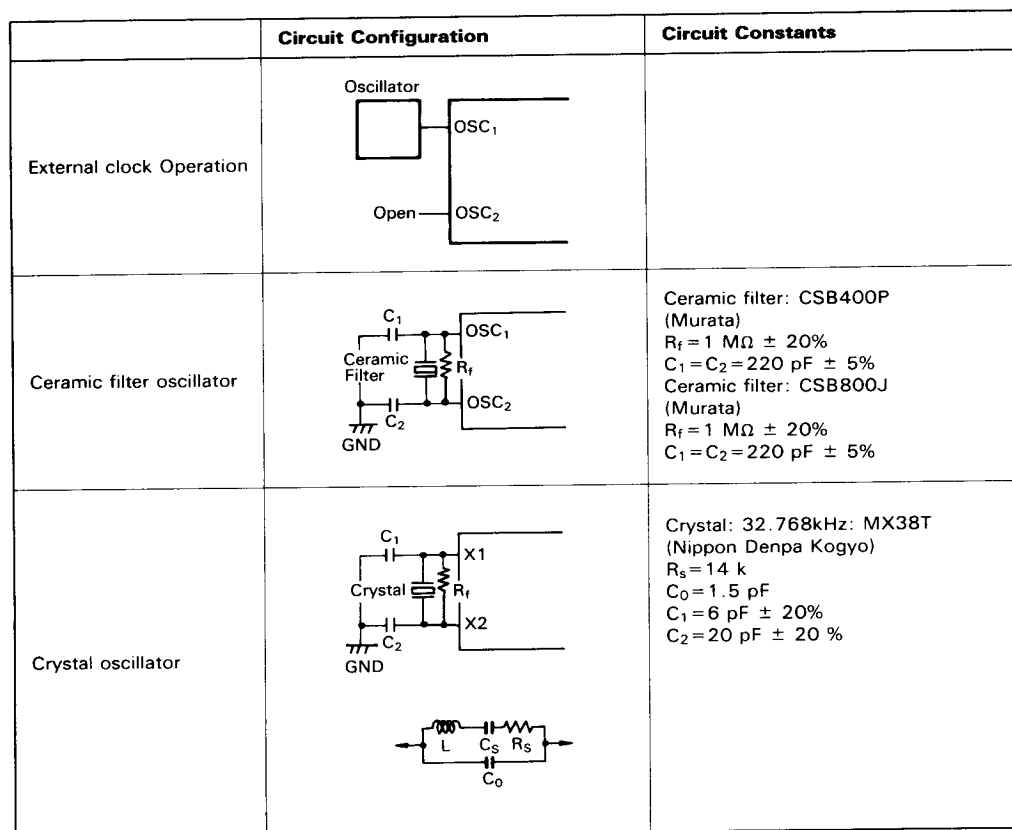 Circuit Configuration
Circuit Constants
External clock Operation
Oscillator
OSC₁
Open
OSC₂
Ceramic filter oscillator
C₁
OSC₁
Ceramic
Filter
R_f
OSC₂
C₂
GND
Ceramic filter: CSB400P
(Murata)
R_f=1 MΩ ± 20%
C₁=C₂=220 pF ± 5%
Ceramic filter: CSB800J
(Murata)
R_f=1 MΩ ± 20%
C₁=C₂=220 pF ± 5%
Crystal oscillator
C₁
X1
Crystal
R_f
X2
C₂
GND
L
C_S
R_S
C₀
Crystal: 32.768kHz: MX38T
(Nippon Denpa Kogyo)
R_s=14 k
C₀=1.5 pF
C₁=6 pF ± 20%
C₂=20 pF ± 20 %